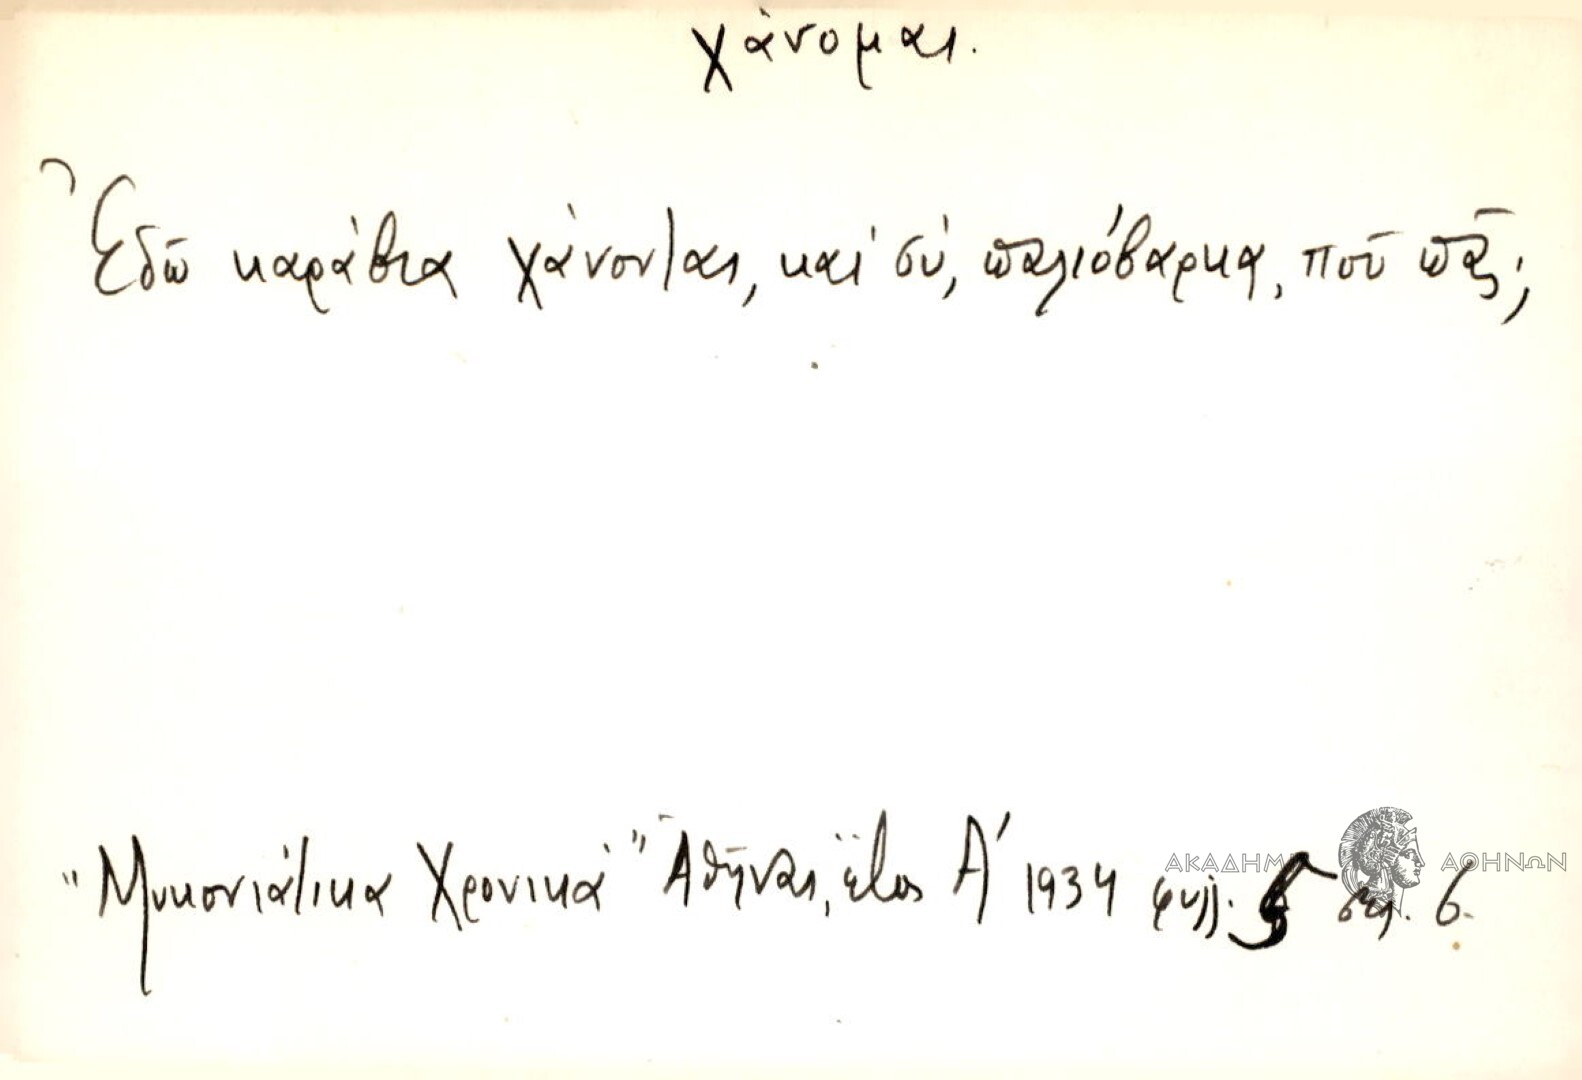 χάνομαι.
Ἐδῶ καράβια χάνονται, καὶ σύ, παλιόβαρκα, ποῦ πᾶς;
"Μυκονιάτικα Χρονικά" Ἀθῆναι, ἔτος Α' 1934 φυλλ. 5 σελ. 6.
ΑΚΑΔΗΜ ΑΘΗΝΩΝ